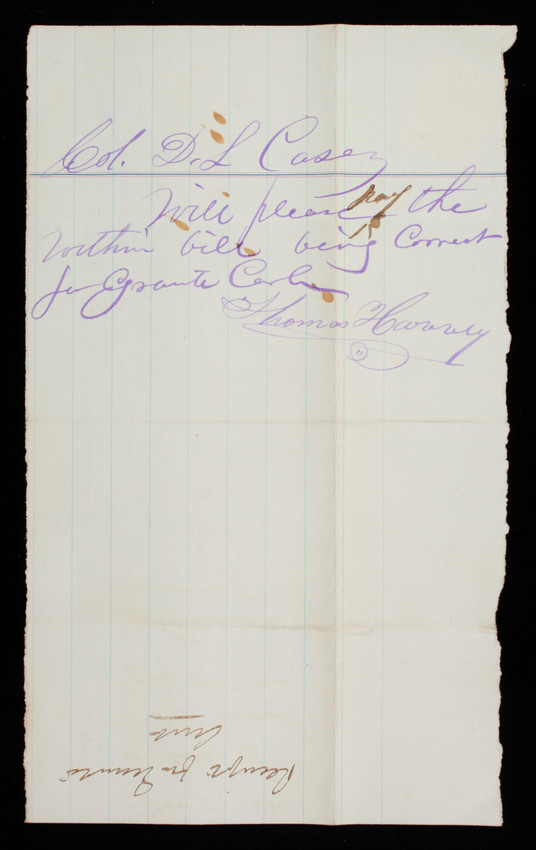 Col. D. L Casey
Will please pay the
within bill being Correct
for Granite Curb
Thomas Harvey
Receipt for
Curb